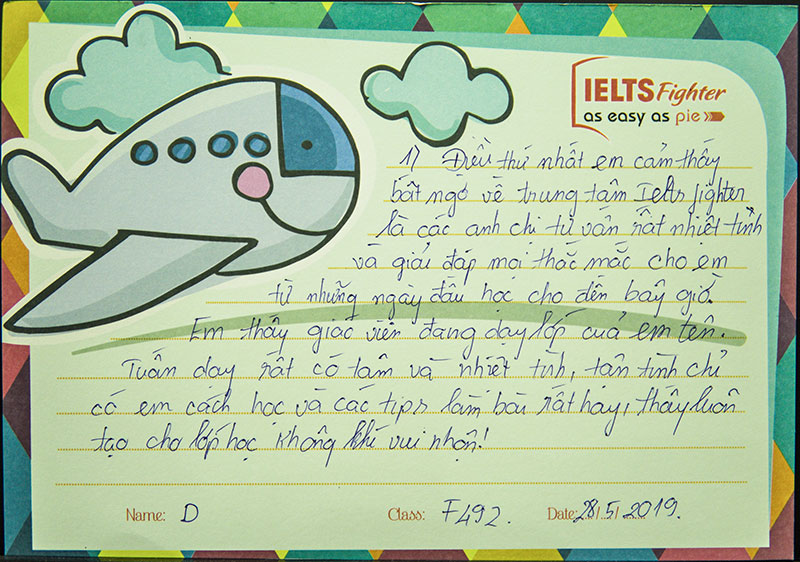 IELTS Fighter
as easy as pie
1) Điều thứ nhất em cảm thấy
bất ngờ về trung tâm Ielts fighter
là các anh chị tư vấn rất nhiệt tình
và giải đáp mọi thắc mắc cho em
từ những ngày đầu học cho đến bây giờ.
Em thấy giáo viên đang dạy lớp của em tên.
Tuấn dạy rất có tâm và nhiệt tình, tận tình chỉ
có em cách học và các tips làm bài rất hay, thầy luôn
tạo cho lớp học không khí vui nhộn!
Name: D Class: F492. Date: 28/5/2019.